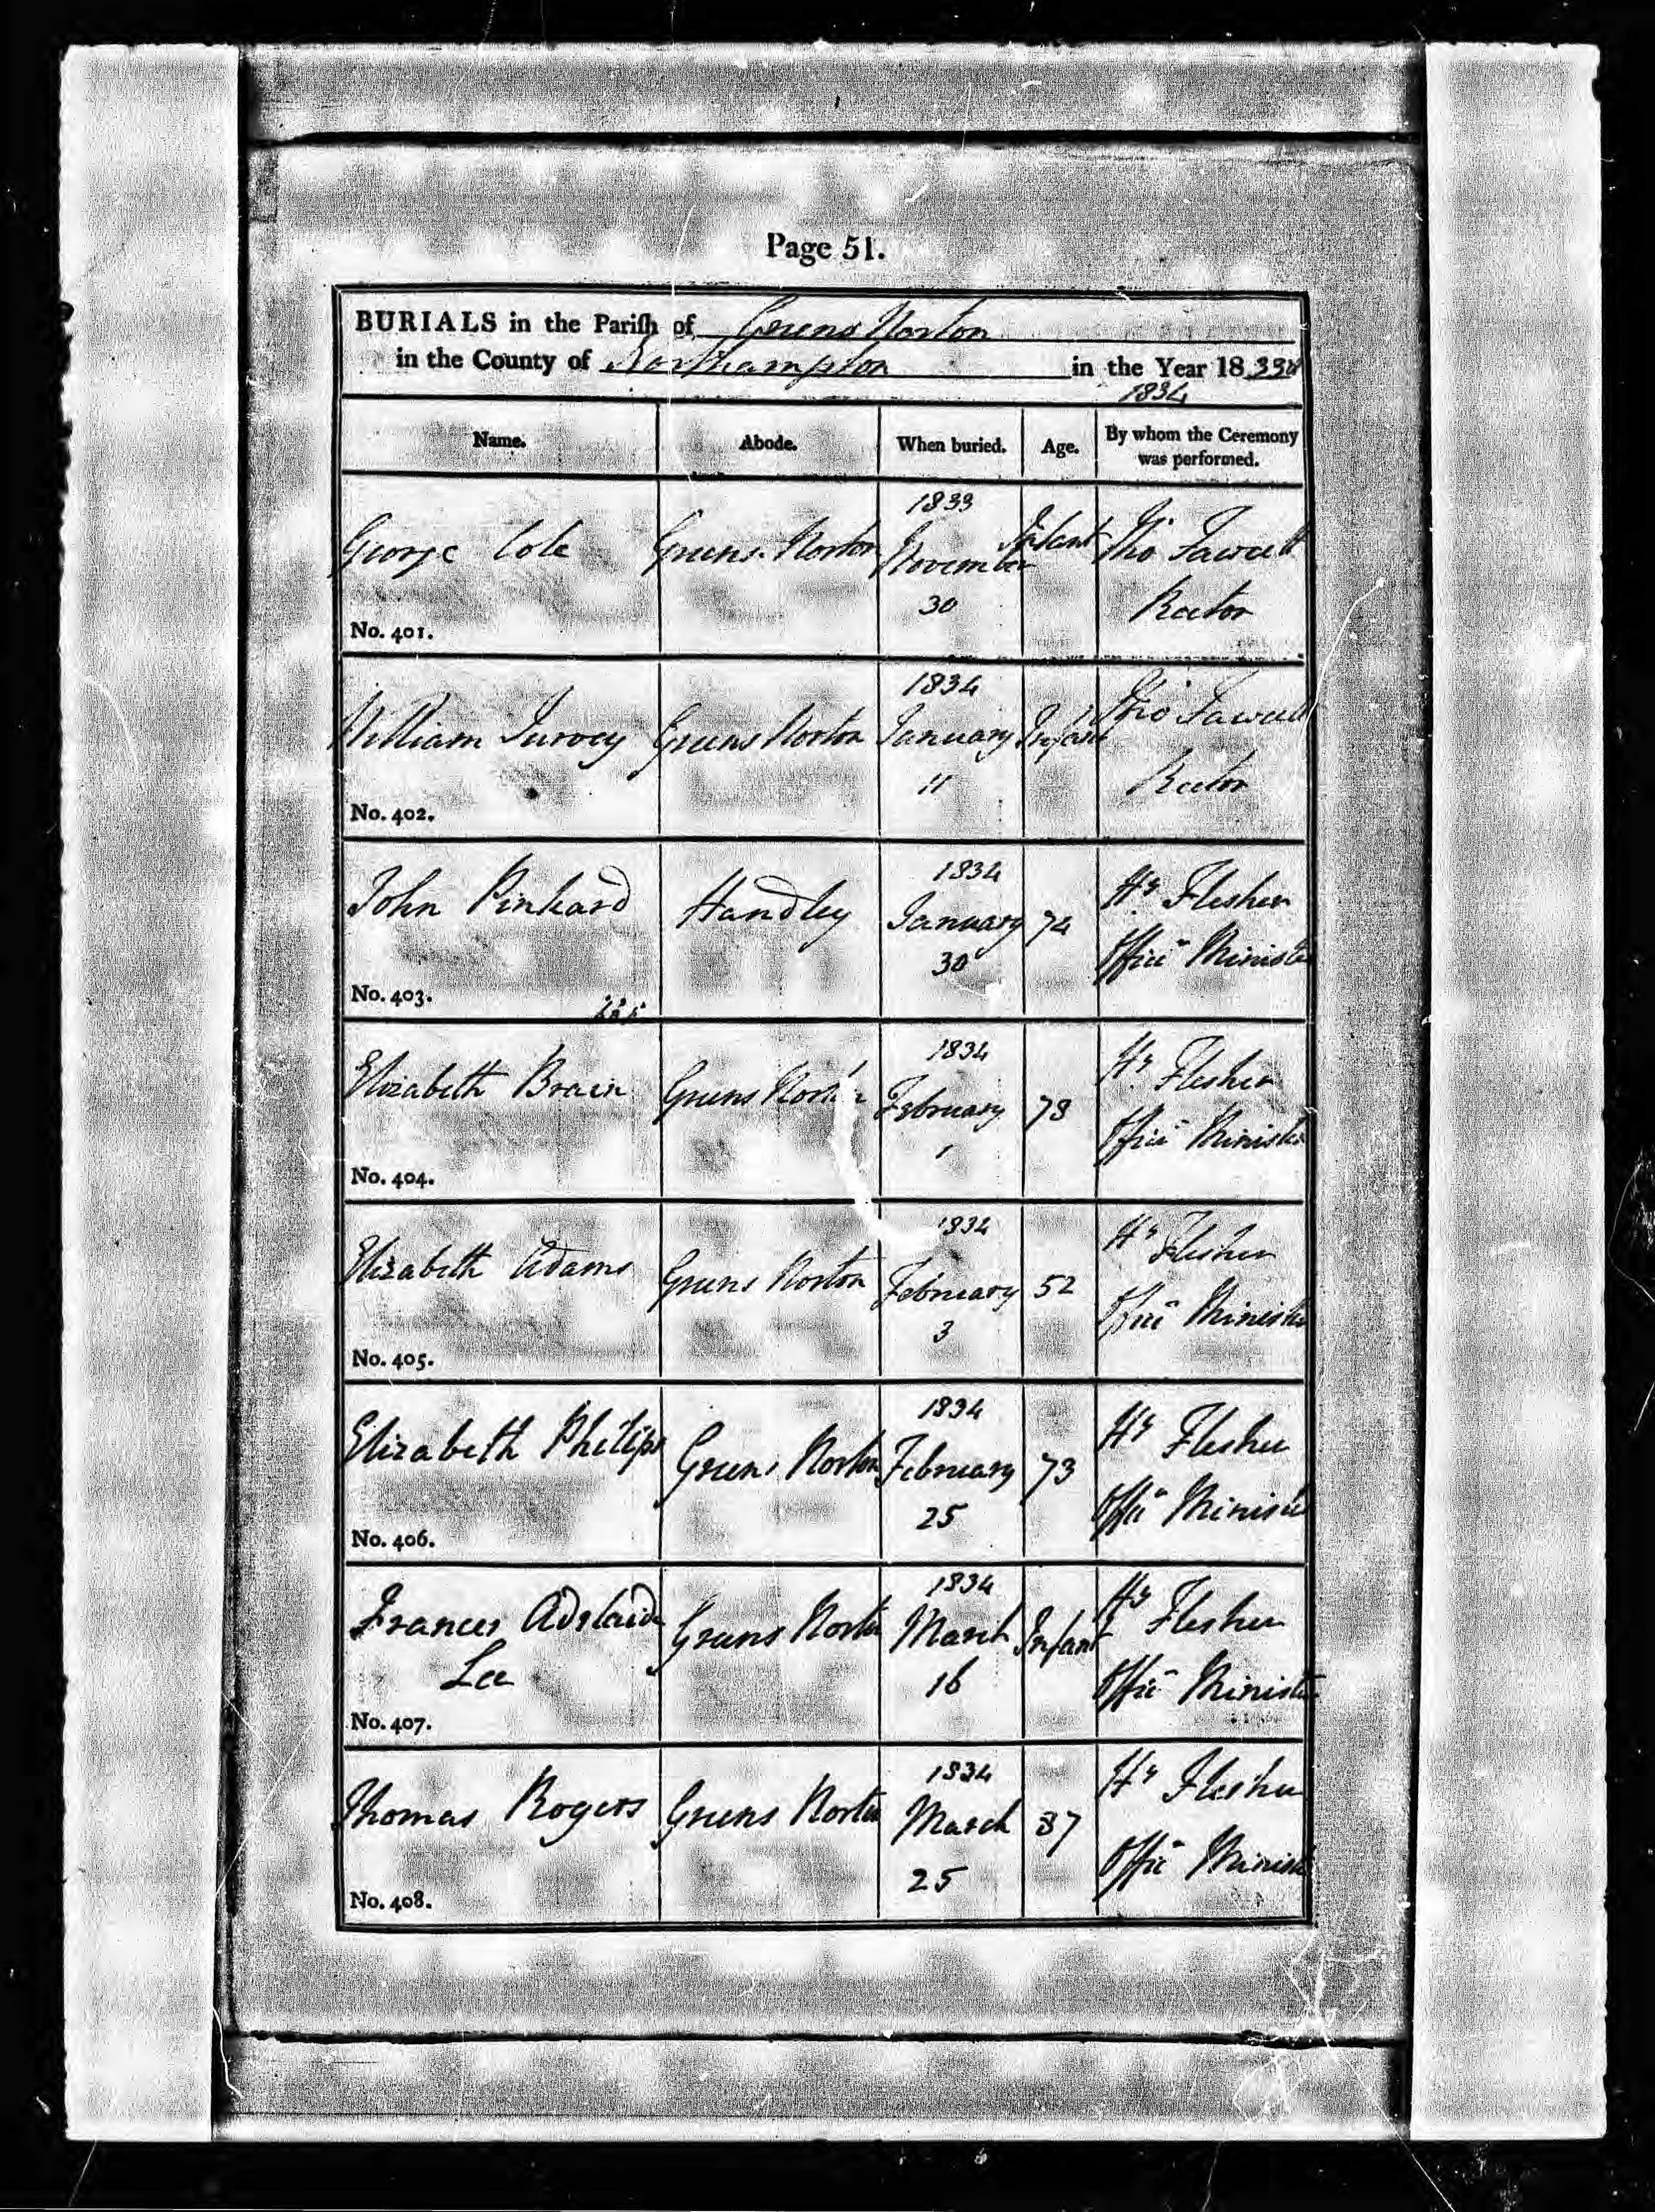 Page 51.
BURIALS in the Parish of Greens Norton
in the County of Northampton in the Year 1833
1834
Name. Abode. When buried. Age. By whom the Ceremony was performed.
1833
George Cole Greens Norton November Infant Tho Fawcett
30 Rector
No. 401.
1834
William Turvey Greens Norton January Infant Tho Fawcett
11 Rector
No. 402.
1834
John Pinkard Handley January 74 Hy Flesher
30 Offic Minister
No. 403.
1834
Elizabeth Brain Greens Norton February 78 Hy Flesher
1 Offic Minister
No. 404.
1834
Elizabeth Adams Greens Norton February 52 Hy Flesher
3 Offic Minister
No. 405.
1834
Elizabeth Philips Greens Norton February 73 Hy Flesher
25 Offic Minister
No. 406.
1834
Frances Adelaide Greens Norton March Infant Hy Flesher
Lee 16 Offic Minister
No. 407.
1834
Thomas Rogers Greens Norton March 37 Hy Flesher
25 Offic Minister
No. 408.